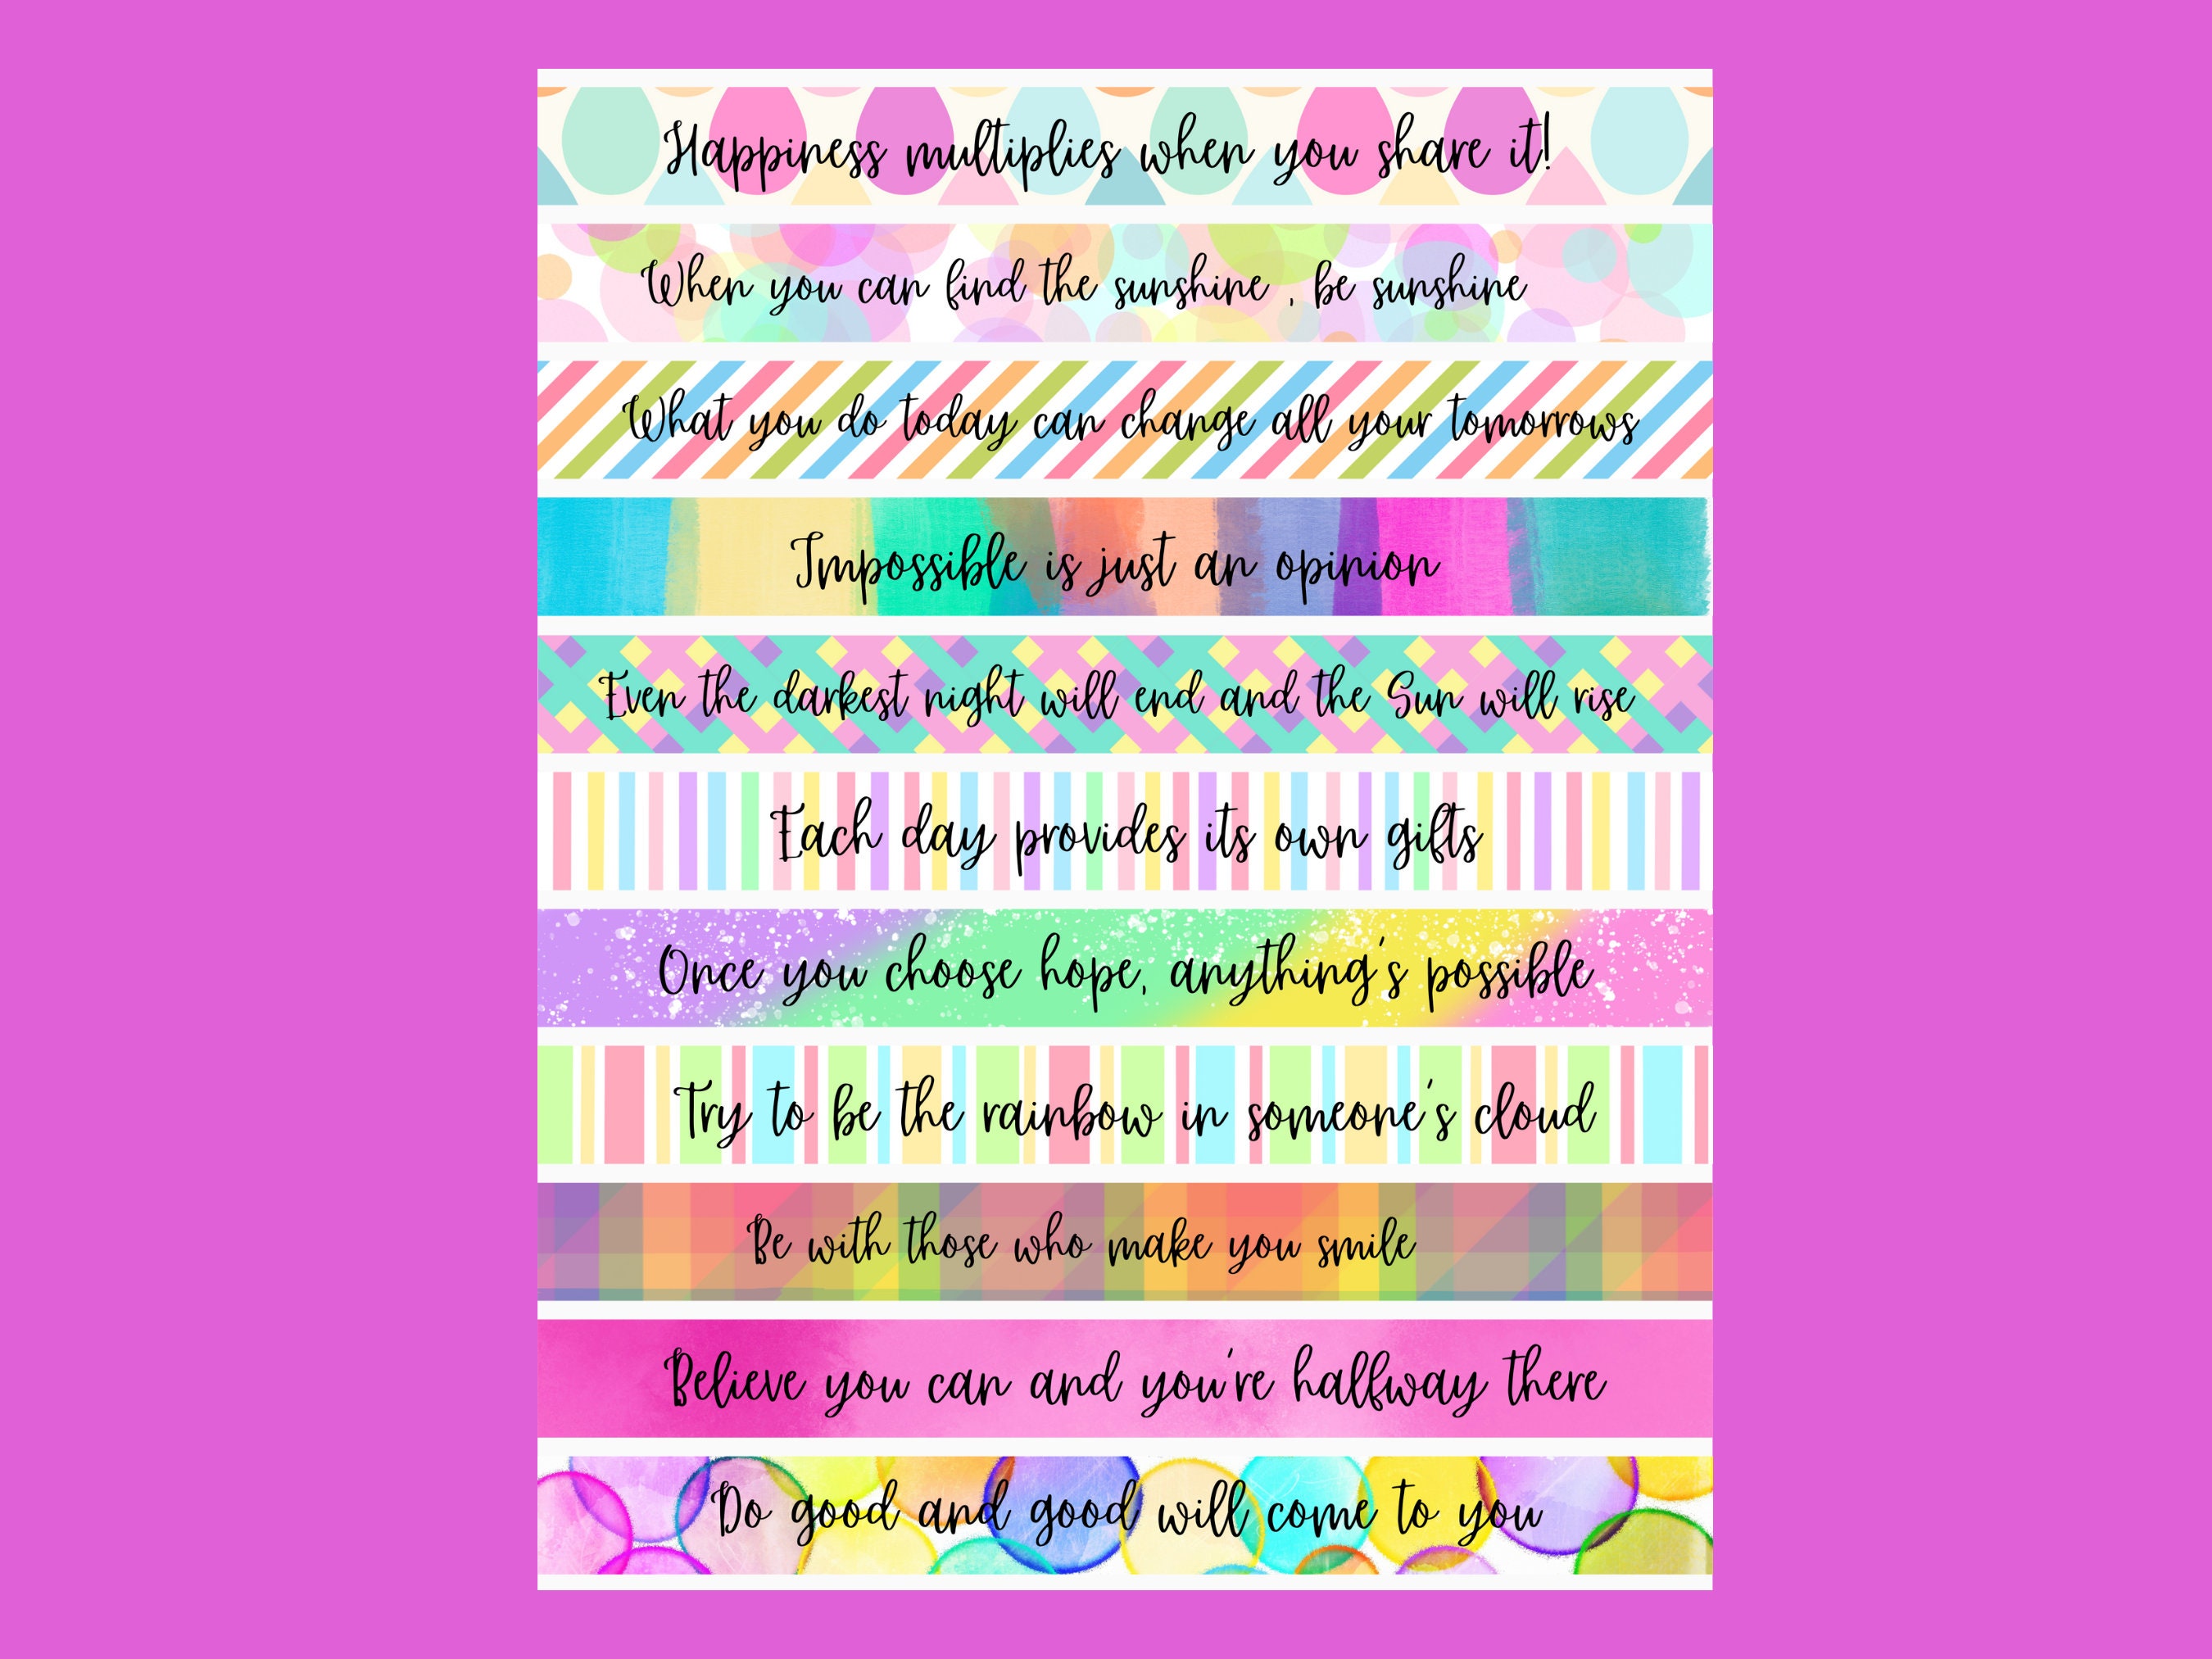 Happiness multiplies when you share it!
When you can find the sunshine , be sunshine
What you do today can change all your tomorrows
Impossible is just an opinion
Even the darkest night will end and the Sun will rise
Each day provides its own gifts
Once you choose hope, anything's possible
Try to be the rainbow in someone's cloud
Be with those who make you smile
Believe you can and you're halfway there
Do good and good will come to you